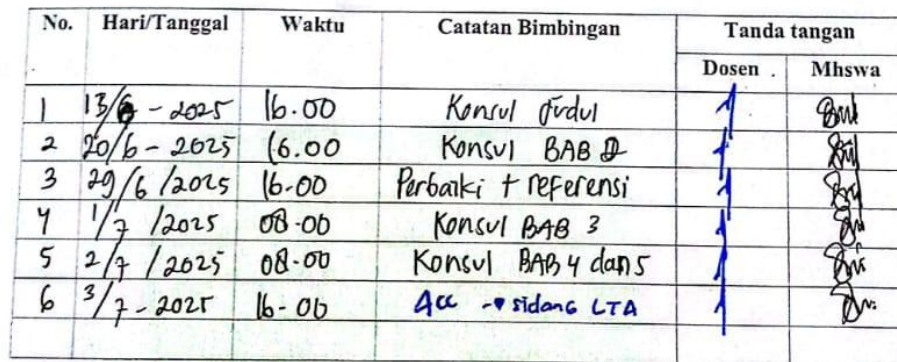 No. Hari/Tanggal Waktu Catatan Bimbingan Tanda tangan
Dosen Mhswa
1 13/6 - 2025 16.00 Konsul Judul
2 20/6 - 2025 16.00 Konsul BAB
3 29/6 /2025 16-00 Perbaiki + referensi
4 1/7 /2025 08-00 Konsul BAB 3
5 2/7 /2025 08-00 Konsul BAB 4 dan 5
6 3/7 - 2025 16-00 Acc → sidang LTA